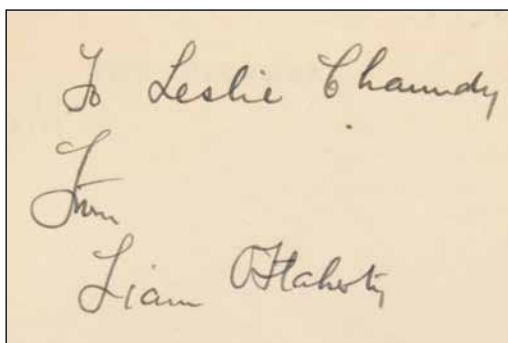 To Leslie Chaundy
From
Liam O'Flaherty